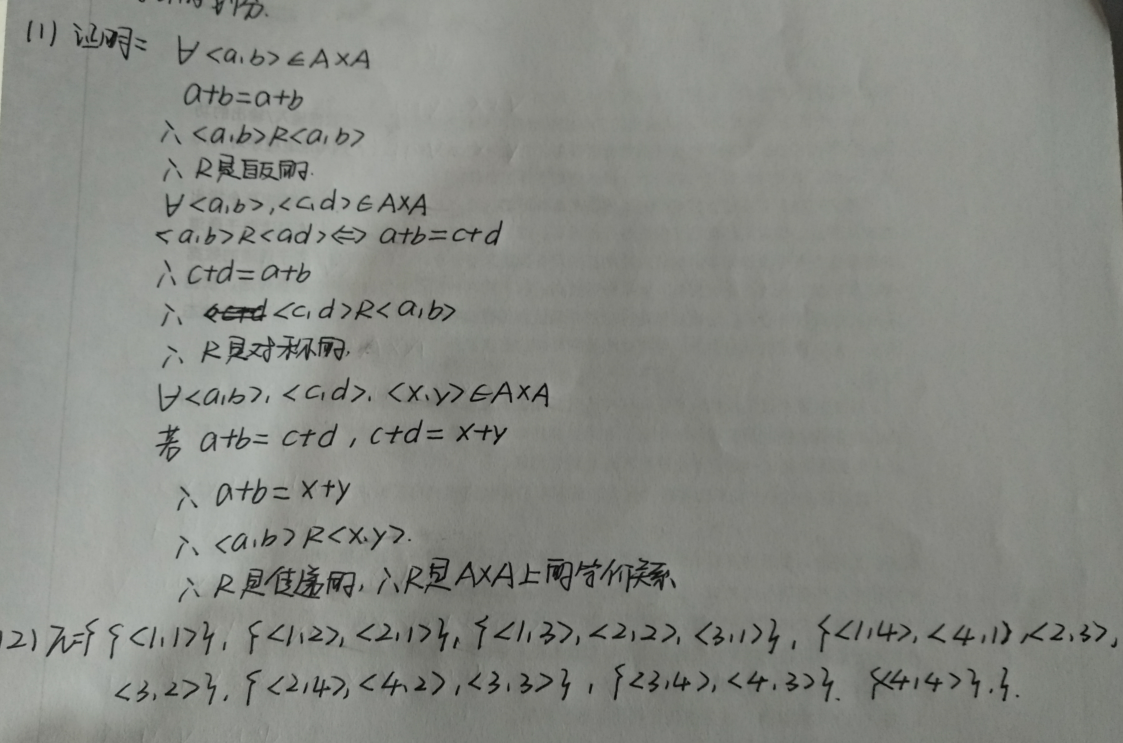 的划分.
(1) 证明= ∀<a,b>∈A×A
a+b=a+b
∴<a,b>R<a,b>
∴R是自反的.
∀<a,b>,<c,d>∈A×A
<a,b>R<ad>⇔ a+b=c+d
∴c+d=a+b
∴ <c,d>R<a,b>
∴ R是对称的,
∀<a,b>, <c,d>, <x,y>∈A×A
若 a+b=c+d, c+d=x+y
∴ a+b=x+y
∴ <a,b>R<x,y>.
∴R是传递的, ∴R是A×A上的等价关系
(2) π={{<1,1>}, {<1,2>,<2,1>}, {<1,3>,<2,2>,<3,1>}, {<1,4>,<4,1>,<2,3>,
<3,2>}, {<2,4>,<4,2>,<3,3>}, {<3,4>,<4,3>}. {<4,4>},}.